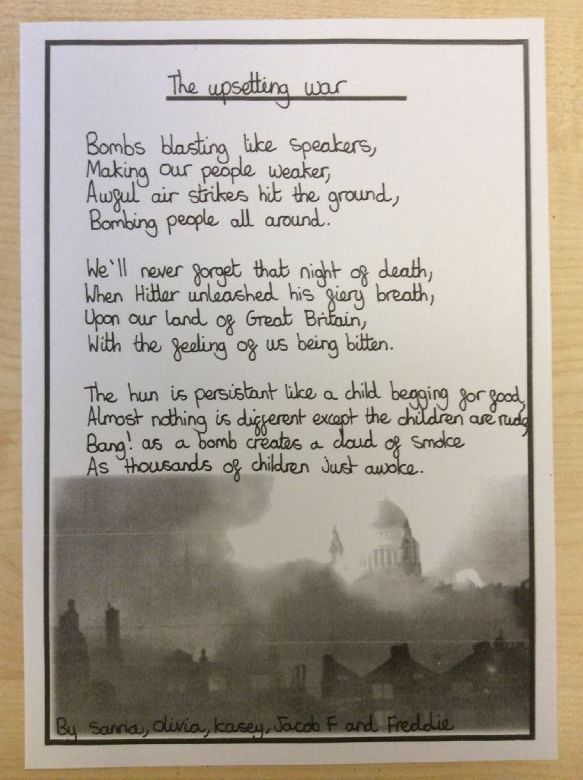 The upsetting war
Bombs blasting like speakers,
Making our people weaker,
Awful air strikes hit the ground,
Bombing people all around.
We'll never forget that night of death,
When Hitler unleashed his fiery breath,
Upon our land of Great Britain,
With the feeling of us being bitten.
The hun is persistant like a child begging for food,
Almost nothing is different except the children are rude
Bang! as a bomb creates a cloud of smoke
As thousands of children just awoke.
By Sanna, Olivia, Kasey, Jacob F and Freddie